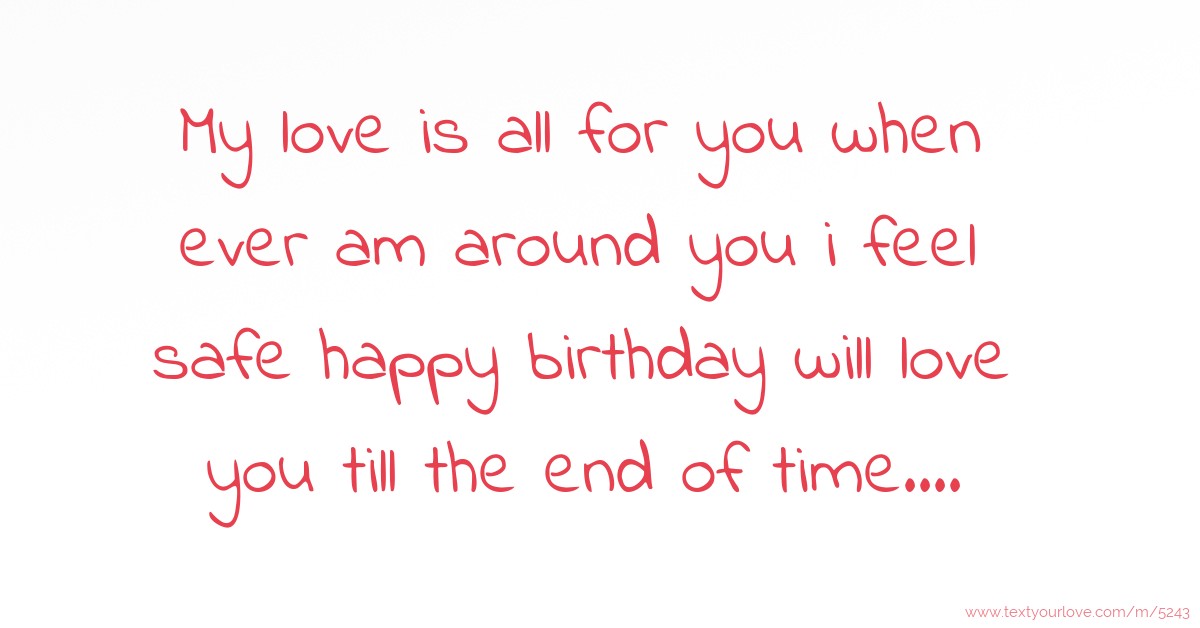 My love is all for you when
ever am around you i feel
safe happy birthday will love
you till the end of time....
www.textyourlove.com/m/5243